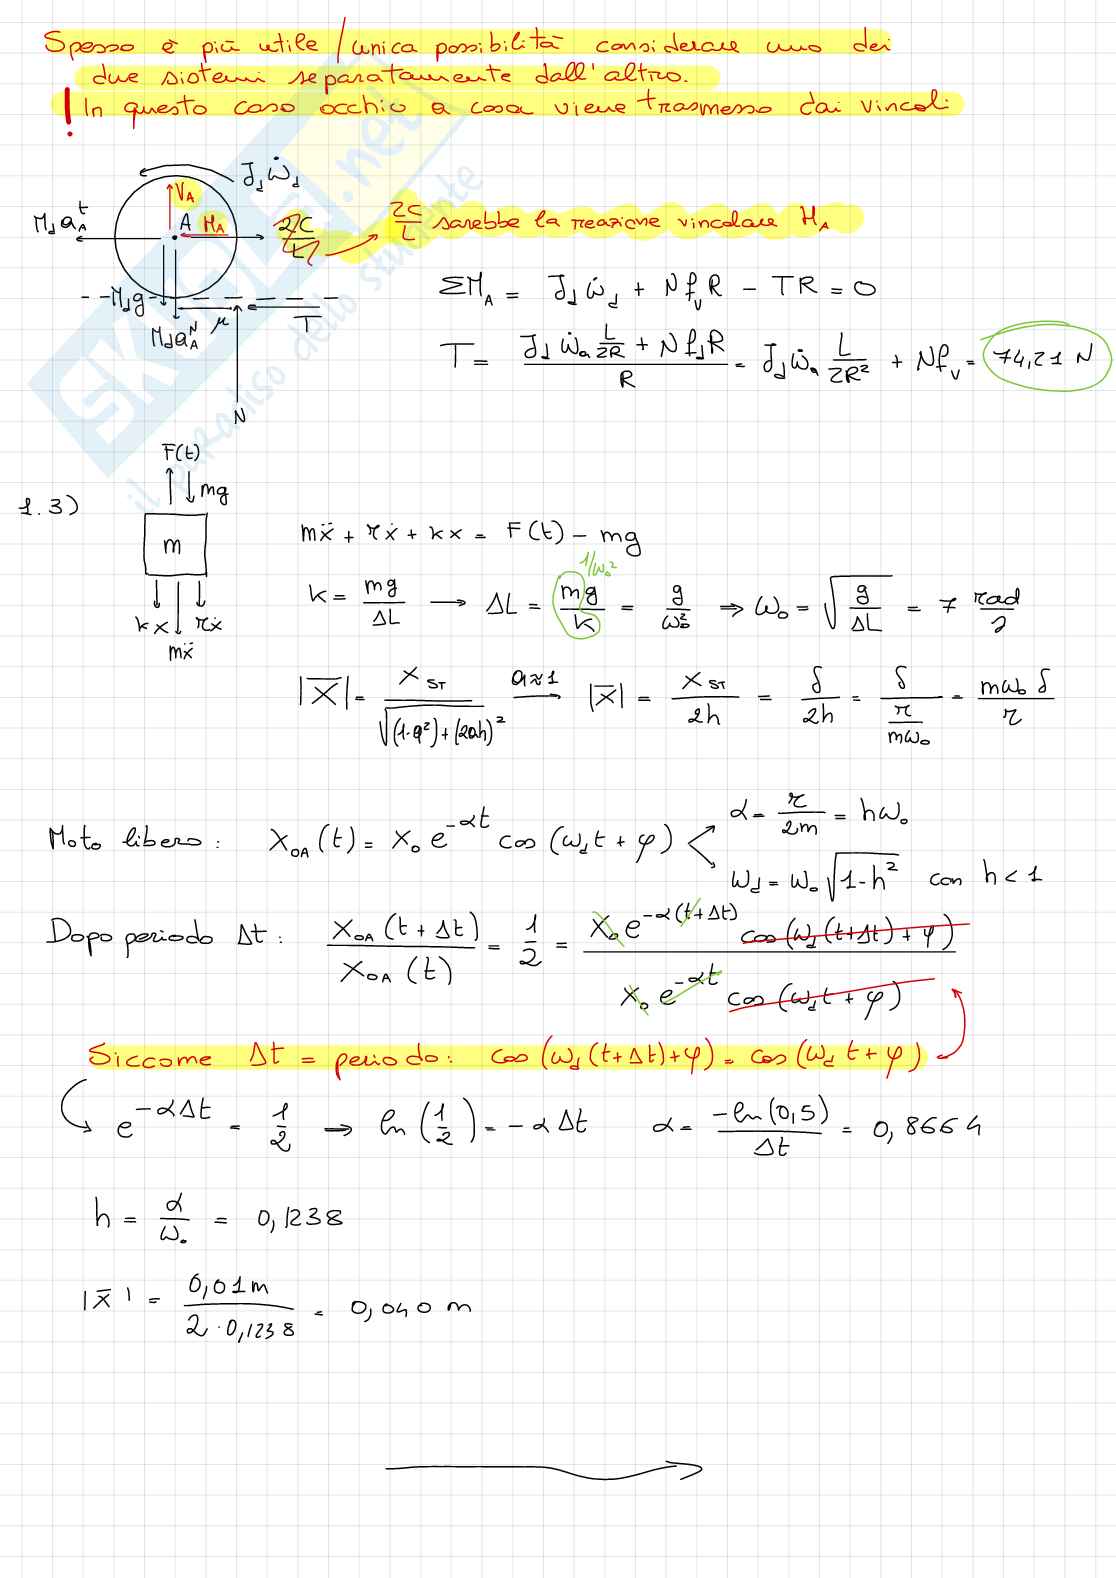 Spesso è più utile / unica possibilità considerare uno dei
due sistemi separatamente dall'altro.
! In questo caso occhio a cosa viene trasmesso dai vincoli
J_d ω̇_d
V_A
M_d a_A^t
A
H_A
2C/L
2C/L sarebbe la reazione vincolare H_A
M_d g
M_d a_A^N
μ
T
N
ΣM_A = J_d ω̇_d + N f_v R - TR = 0
T = (J_d ω̇_a L/2R + N f_d R)/R = J_d ω̇_a L/2R² + N f_v = 74,21 N
F(t)
mg
1.3)
m
kx
rẋ
mẍ
mẍ + rẋ + kx = F(t) - mg
1/ω₀²
k = mg/ΔL → ΔL = mg/k = g/ω₀² ⇒ ω₀ = √(g/ΔL) = 7 rad/s
|X̄| = X_ST/√((1-a²)+(2ah)²) a≈1 → |X̄| = X_ST/2h = δ/2h = δ/(r/mω₀) = mω₀δ/r
Moto libero: X_OA(t) = X₀ e^(-αt) cos(ω_d t + φ)
α = r/2m = hω₀
ω_d = ω₀ √(1-h²) con h < 1
Dopo periodo Δt: X_OA(t+Δt)/X_OA(t) = 1/2 = X₀ e^(-α(t+Δt)) cos(ω_d(t+Δt)+φ) / X₀ e^(-αt) cos(ω_d t + φ)
Siccome Δt = periodo: cos(ω_d(t+Δt)+φ) = cos(ω_d t + φ)
e^(-αΔt) = 1/2 → ln(1/2) = -αΔt α = -ln(0,5)/Δt = 0,8664
h = α/ω₀ = 0,1238
|X̄| = 0,01m/(2·0,1238) = 0,040 m
SKUOLA.net
il paradiso dello studente